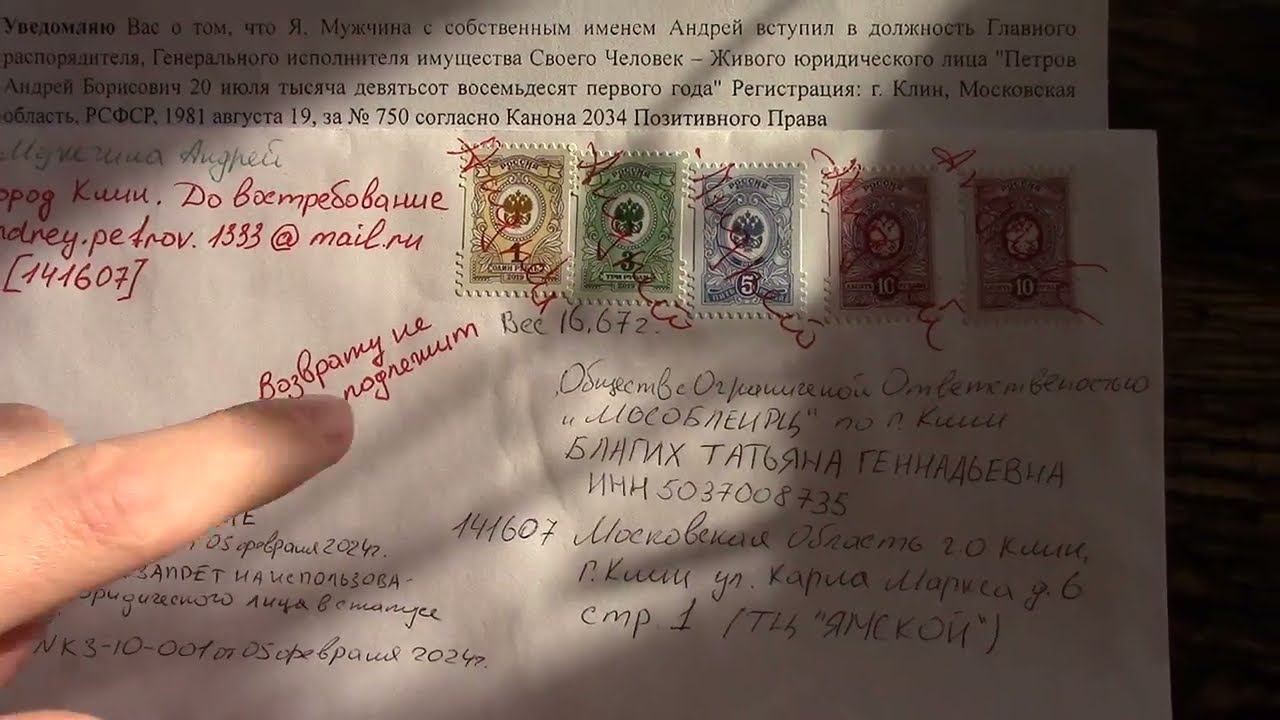 Уведомляю Вас о том, что Я. Мужчина с собственным именем Андрей вступил в должность Главного
распорядителя, Генерального исполнителя имущества Своего Человек – Живого юридического лица "Петров
Андрей Борисович 20 июля тысяча девятьсот восемьдесят первого года" Регистрация: г. Клин, Московская
область, РСФСР, 1981 августа 19, за № 750 согласно Канона 2034 Позитивного Права
Мужчина Андрей
ород Клин. До востребование
ndrey.petrov.1333@mail.ru
[141607]
РОССИЯ РОССИЯ РОССИЯ РОССИЯ РОССИЯ
1 3 5 10 10
ОДИН РУБЛЬ ТРИ РУБЛЯ
2019 2019
Вес 16,67 г.
Возврату не
подлежит
Обществ с Ограниченой Ответственостью
"МОСОБЛЕИРЦ" по г. Клин
БЛАГИХ ТАТЬЯНА ГЕННАДЬЕВНА
ИНН 5037008735
141607 Московская Область г.о Клин,
г. Клин ул. Карла Маркса д. 6
стр. 1 (ТЦ "ЯМСКОЙ")
от 05 февраля 2024г.
ЗАПРЕТ НА ИСПОЛЬЗОВА-
юридического лица в статусе
NK3-10-001 от 05 февраля 2024г.